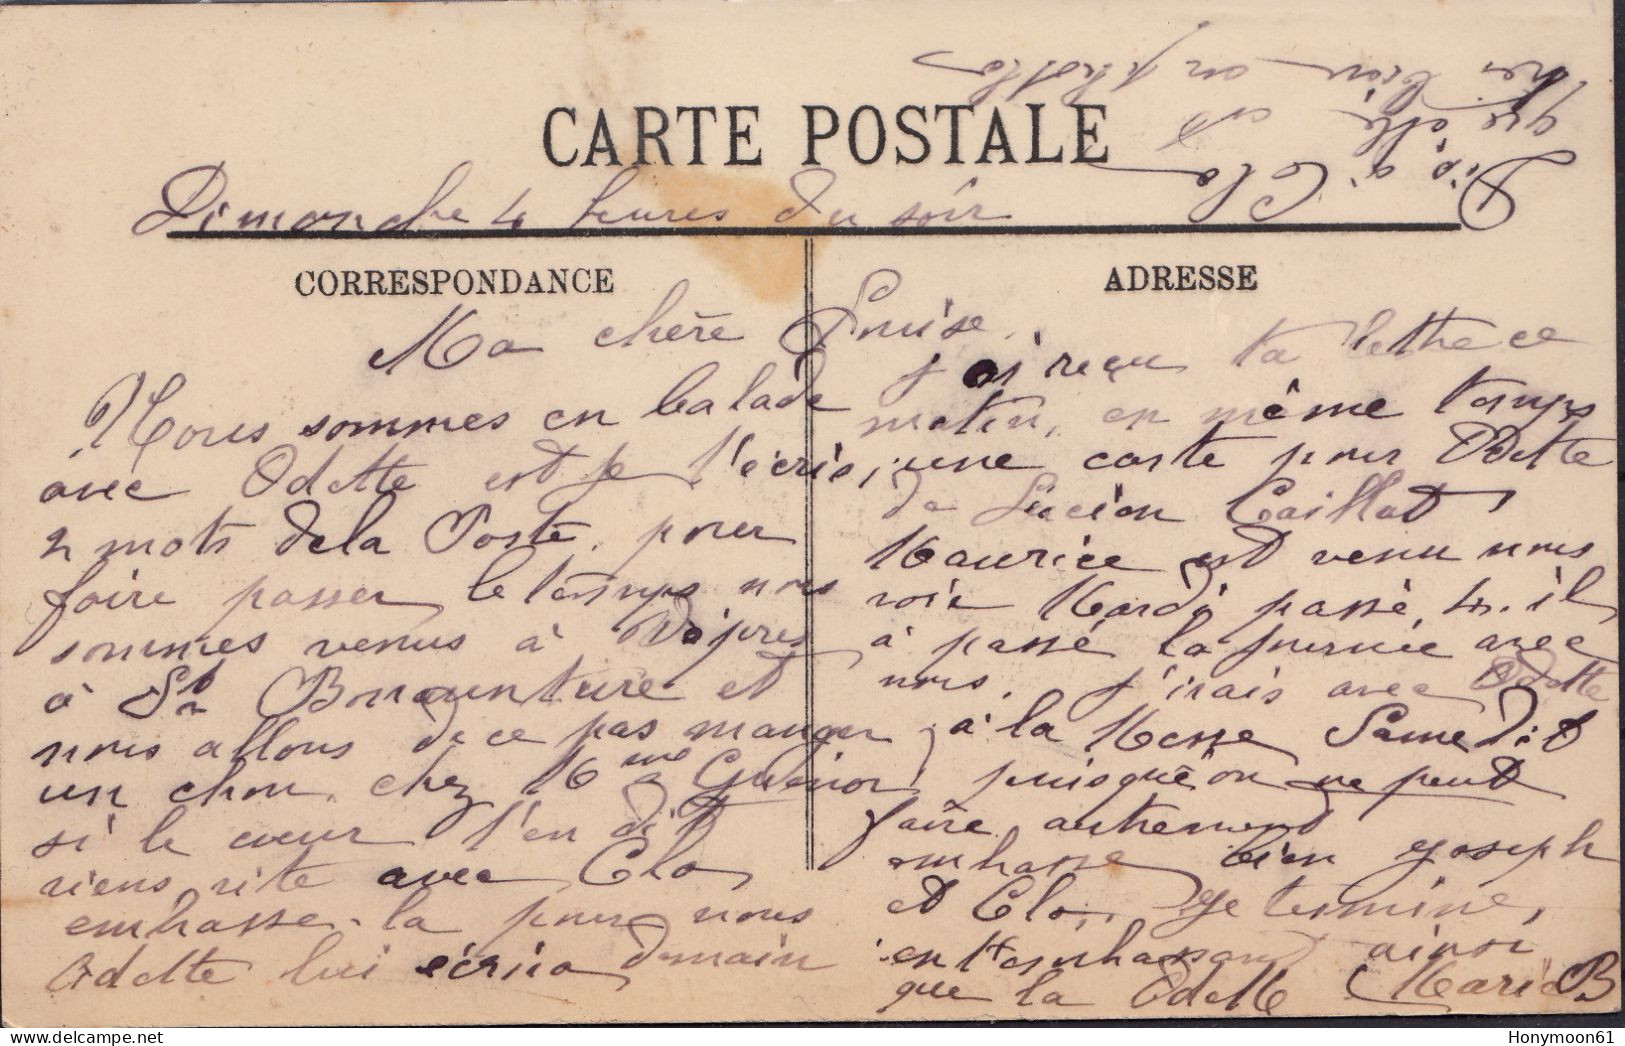 CARTE POSTALE
Dis à Clo
que elle est
très bien en photo
Dimanche 4 heures du soir
CORRESPONDANCE
Ma chère Louise.
Nous sommes en balade
avec Odette est je t'écris,
2 mots de la Poste. pour
faire passer le temps nous
sommes venus à Vêpres
à St Bonaventure et
nous allons de ce pas manger
un chou chez Mme Guénor
si le cœur t'en dit
viens vite avec Clo,
embrasse-la pour nous
Odette lui écrira demain
ADRESSE
j'ai reçu ta lettre ce
matin, en même temps
une carte pour Odette
de Lucien Caillat,
Maurice est venu nous
voir Mardi passé, il
à passé la journée avec
nous. j'irais avec Odette
à la Messe Samedi
puisqu'on ne peut
faire autrement
embrasse bien Joseph
et Clo. Je termine,
en t'embrassant ainsi
que la Odette Marie B
Honymoon61